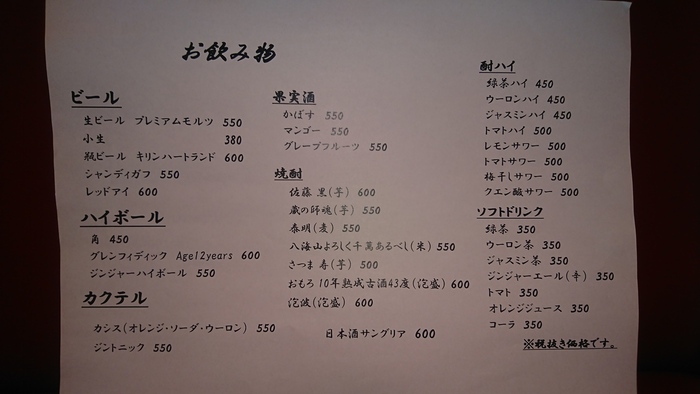 お飲み物
ビール
生ビール プレミアムモルツ 550
小生 380
瓶ビール キリンハートランド 600
シャンディガフ 550
レッドアイ 600
ハイボール
角 450
グレンフィディック Age12years 600
ジンジャーハイボール 550
カクテル
カシス(オレンジ・ソーダ・ウーロン) 550
ジントニック 550
果実酒
かぼす 550
マンゴー 550
グレープフルーツ 550
焼酎
佐藤 黒(芋) 600
蔵の師魂(芋) 550
泰明(麦) 550
八海山よろしく千萬あるべし(米) 550
さつま 寿(芋) 500
おもろ 10年熟成古酒43度(泡盛) 600
泡波(泡盛) 600
日本酒サングリア 600
酎ハイ
緑茶ハイ 450
ウーロンハイ 450
ジャスミンハイ 450
トマトハイ 500
レモンサワー 500
トマトサワー 500
梅干しサワー 500
クエン酸サワー 500
ソフトドリンク
緑茶 350
ウーロン茶 350
ジャスミン茶 350
ジンジャーエール(辛) 350
トマト 350
オレンジジュース 350
コーラ 350
※税抜き価格です。